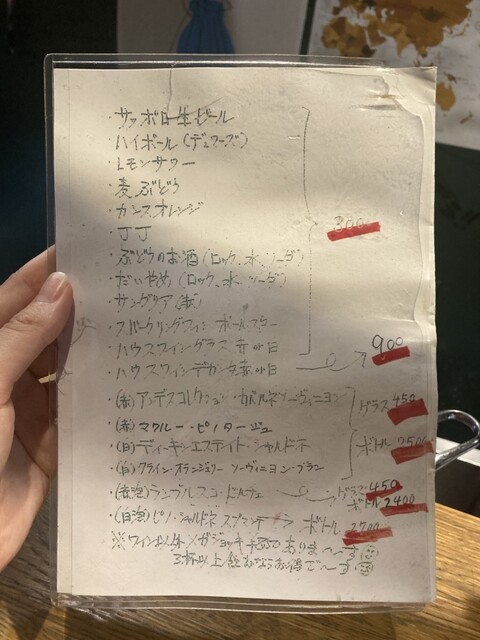 ・サッポロ生ビール
・ハイボール(デュワーズ)
・レモンサワー
・麦ぶどう
・カシスオレンジ
・丁丁
・ぶどうのお酒(ロック、水、ソーダ)
・だいやめ(ロック、水、ソーダ)
・サングリア(赤)
・スパークリングワイン ポールスター
300
・ハウスワイングラス 赤or白
・ハウスワインデカンタ 赤or白 900
・(赤)アンデスコレクション・カベルネソーヴィニヨン
・(赤)マクルー・ピノタージュ
・(白)ディーキンエステイト・シャルドネ
・(白)クライン・オランジェリー ソーヴィニヨン・ブラン
グラス 450
ボトル 2500
・(赤泡)ランブルスコ・ドルチェ グラス 450
ボトル 2400
・(白泡)ピノ・シャルドネ スプマンテ ボトル 2700
※ワイン以外×ガジョッキもあります
3杯以上飲むならお得で〜す